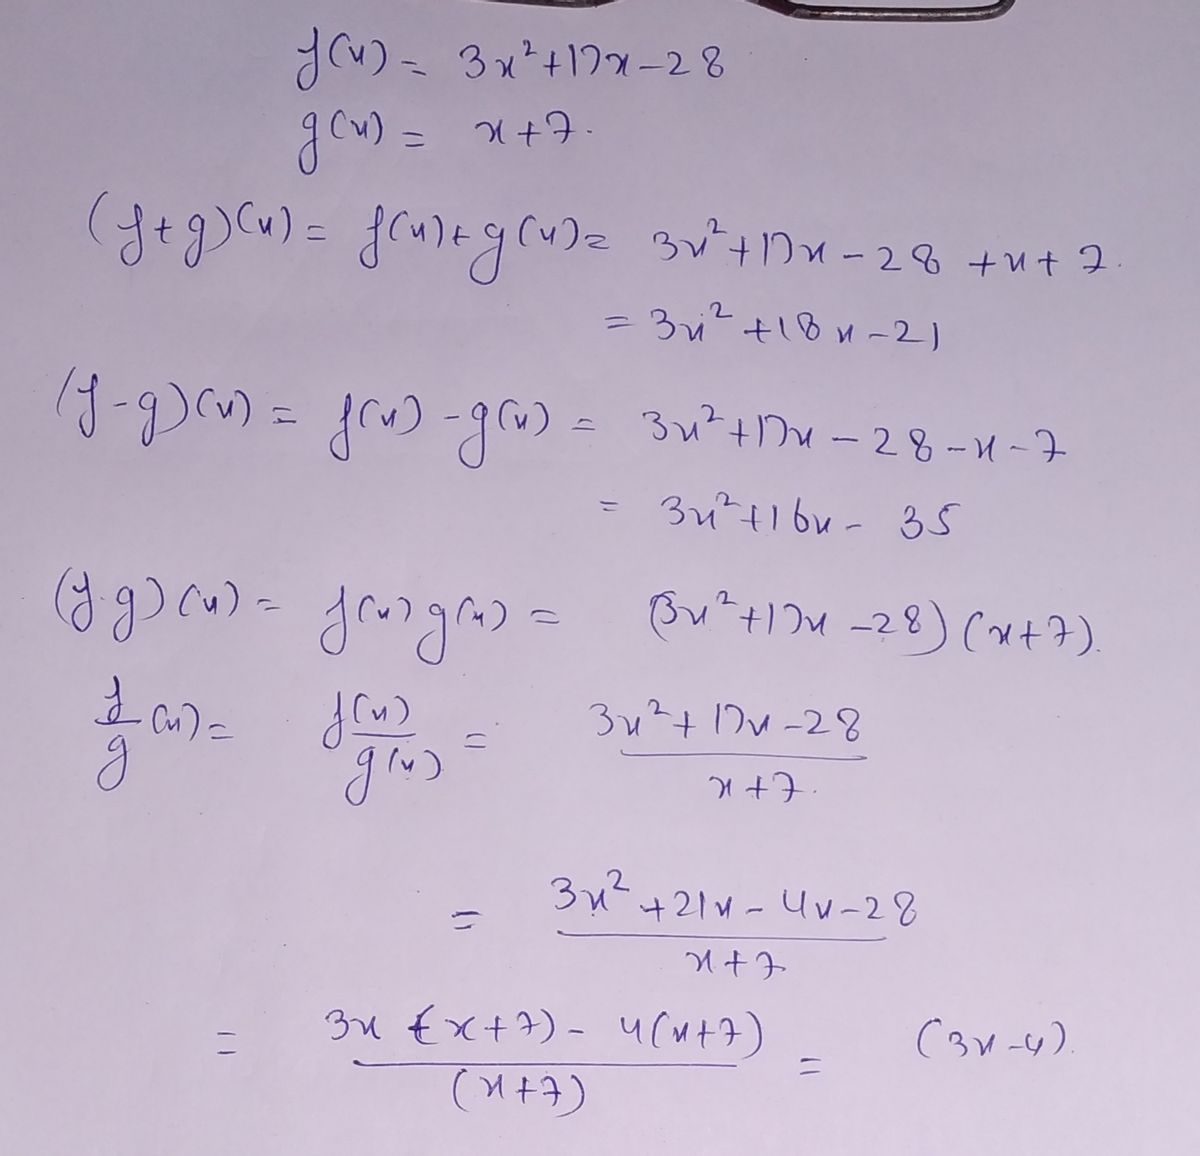 f(x) = 3x²+17x-28
g(x) = x+7.
(f+g)(x) = f(x)+g(x) = 3x²+17x-28 +x+7.
= 3x²+18x-21
(f-g)(x) = f(x)-g(x) = 3x²+17x-28-x-7
= 3x²+16x-35
(f.g)(x) = f(x)g(x) = (3x²+17x-28)(x+7).
f/g (x) = f(x)/g(x) = 3x²+17x-28/x+7.
= 3x²+21x-4x-28/x+7
= 3x(x+7)-4(x+7)/(x+7) = (3x-4).